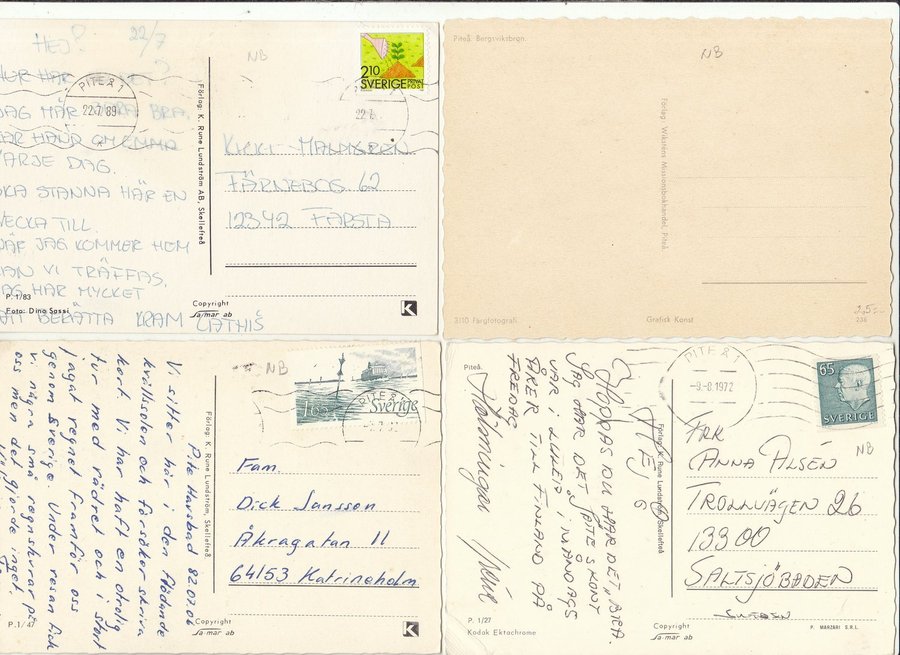 HEJ!
22/7
NB
HUR HAR
PITEÅ 1
22.7.89
JAG MÅR BARA BRA.
HAR HAND OM EMMA
VARJE DAG.
SKA STANNA HÄR EN
VECKA TILL.
NÄR JAG KOMMER HEM
KAN VI TRÄFFAS.
JAG HAR MYCKET
ATT BERÄTTA KRAM CATHIS
P. 1/83
Foto: Dino Sassi
Förlag: K. Rune Lundström AB, Skellefteå
2.10
SVERIGE PRIVATPOST
22.7
KICKI MALMGREN
FÄRNEBOG 62
123 42 FARSTA
Copyright
Sa/mär ab
K
Piteå. Bergsviksbron.
NB
Förlag: Wikstens Missionsbokhandel, Piteå.
3110 Färgfotografi
Grafisk Konst
25:-
236
Pite Havsbad 82.07.06
Vi sitter här i den flödande
kvällssolen och försöker skriva
kort. Vi har haft en otrolig
tur med vädret och i stort
inget regnet framför oss
genom Sverige. Under resan fick
vi några små regnskurar på
oss men det gjorde inget.
P.1/47
Förlag: K. Rune Lundström, Skellefteå.
NB
1.65
Sverige
PITEÅ
Fam.
Dick Jansson
Åkragatan 11
64153 Katrineholm
Copyright
Sa/mär ab
K
Piteå.
HEJ
HOPPAS DU HAR DET BRA.
JAG HAR DET "PITE" SKÖNT
VAR I LULEÅ I MÅNDAGS
ÅKER TILL FINLAND PÅ
FREDAG
Hälsningar
P. 1/27
Kodak Ektachrome
Förlag: K. Rune Lundström, Skellefteå
PITEÅ 1
-9.-8.1972
65
SVERIGE
NB
FRK
ANNA ALSÉN
TROLLVÄGEN 26
133 00
SALTSJÖBADEN
SWEDEN
Copyright
Sa/mär ab
P. MARZARI S.R.L.